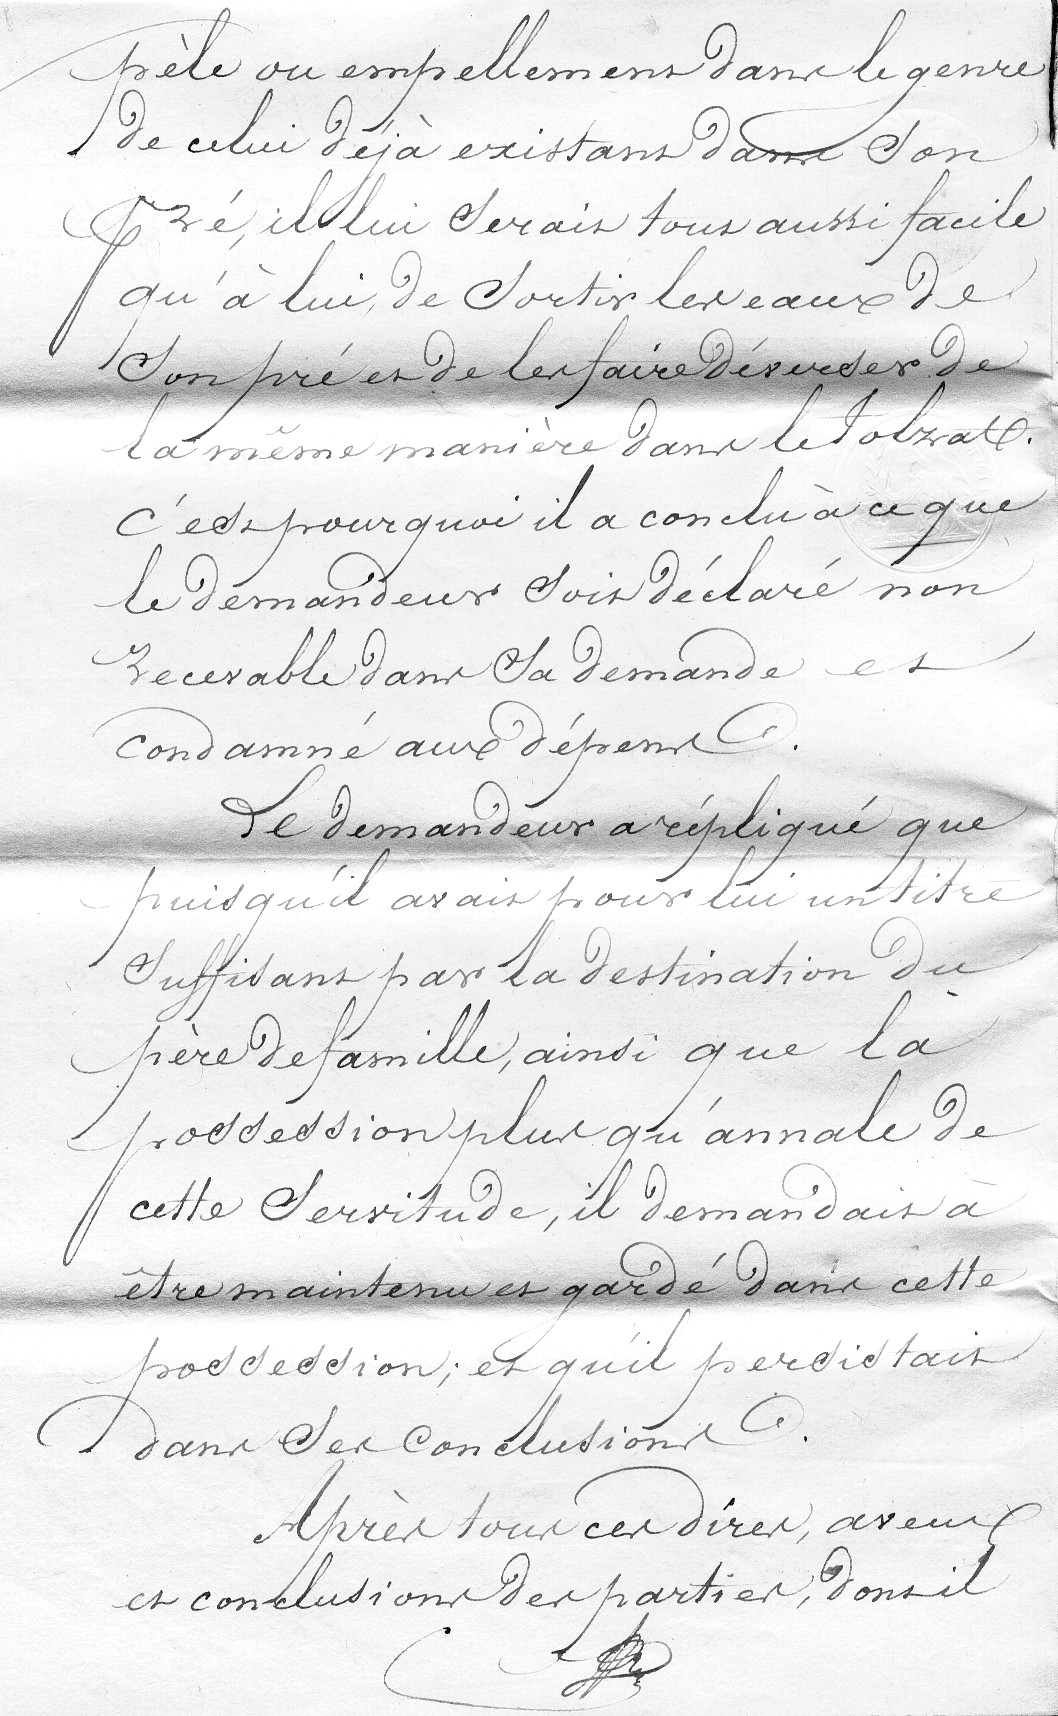 pèle ou empellement dans le genre
de celui déjà existant dans son
Pré, il lui serait tout aussi facile
qu'à lui, de sortir les eaux de
son pré et de les faire déverser de
la même manière dans le Tolvat.
C'est pourquoi il a conclu à ce que
le demandeur soit déclaré non
recevable dans sa demande et
condamné aux dépens.
Le demandeur a répliqué que
puisqu'il avait pour lui un titre
suffisant par la destination du
père de famille, ainsi que la
possession plus qu'annale de
cette servitude, il demandait à
être maintenu et gardé dans cette
possession; et qu'il persistait
dans ses conclusions.
Après tous ces dires, aveux
et conclusions des parties, dont il